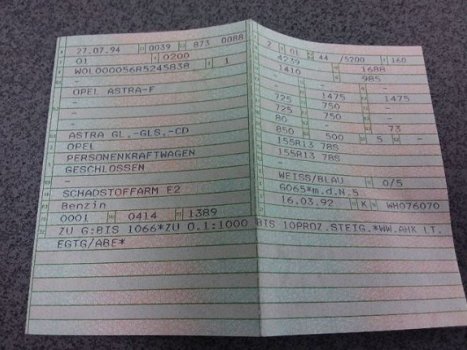 27.07.94 0039 873 0088
01 0200
W0L000056R5245838 1
-
OPEL ASTRA-F
-
-
-
ASTRA GL,-GLS,-CD
OPEL
PERSONENKRAFTWAGEN
GESCHLOSSEN
-
SCHADSTOFFARM E2
Benzin
0001 0414 1389
2 01 44 /5200 160
4239 1688
1410 985
-
725 1475 1475
725 750 -
80 750 -
850 73
- 500 5 -
155R13 78S
155R13 78S
-
-
WEISS/BLAU 0/5
G065*m.d.N.5
16.03.92 K WH076070
ZU G:BIS 1066*ZU 0.1:1000 BIS 10PROZ.STEIG.*WW.AHK LT.
EGTG/ABE*